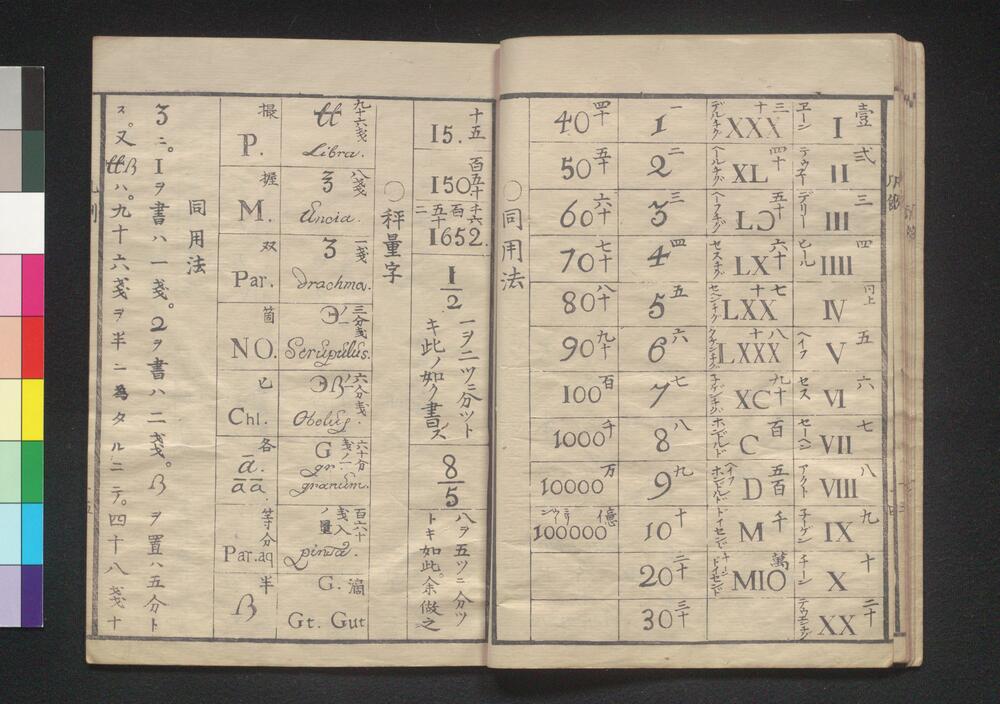 壹 I ヱーン
弍 II テゥエー
三 III デリー
四 IIII ヒール
同上 IV
五 V ヘイフ
六 VI セス
七 VII セーヘン
八 VIII アクト
九 IX ネーゲン
十 X チーン
二十 XX
三十 XXX
四十 XL
五十 LƆ
六十 LX
七十 LXX
八十 LXXX
九十 XC
百 C ホンドルド
五百 D ヘイフホンドルド
千 M ドイセンド
萬 MIO チーンドイセンド
一 1
二 2
三 3
四 4
五 5
六 6
七 7
八 8
九 9
十 10
二十 20
三十 30
四十 40
五十 50
六十 60
七十 70
八十 80
九十 90
百 100
千 1000
万 10000
億 100000
○同用法
十五 15.
百五十 150
千六百五十二 1652.
1/2 一ヲ二ツニ分ツトキ此ノ如ク書ス
8/5 八ヲ五ツニ分ツトキ如此。余倣之
○秤量字
九十六戔 ℔ Libra.
八戔 ℥ Uncia.
一戔 ʒ drachma.
三分戔ノ一 ℈ Scrupulus.
六分戔ノ一 ℈ß Obolus.
六十分戔ノ一 G gr. granum.
百六十戔入ノ量 pinta.
滴 G. Gt. Gut
撮 P.
握 M.
双 Par.
箇 NO.
匕 Chl.
各 ā. āā.
等分 Par.aq
半 ß
同用法
ʒニ。1ヲ書ハ一戔。2ヲ書ハ二戔。ßヲ置ハ五分ト
ス。又℔ßハ。九十六戔ヲ半ニ為タルニテ。四十八戔十